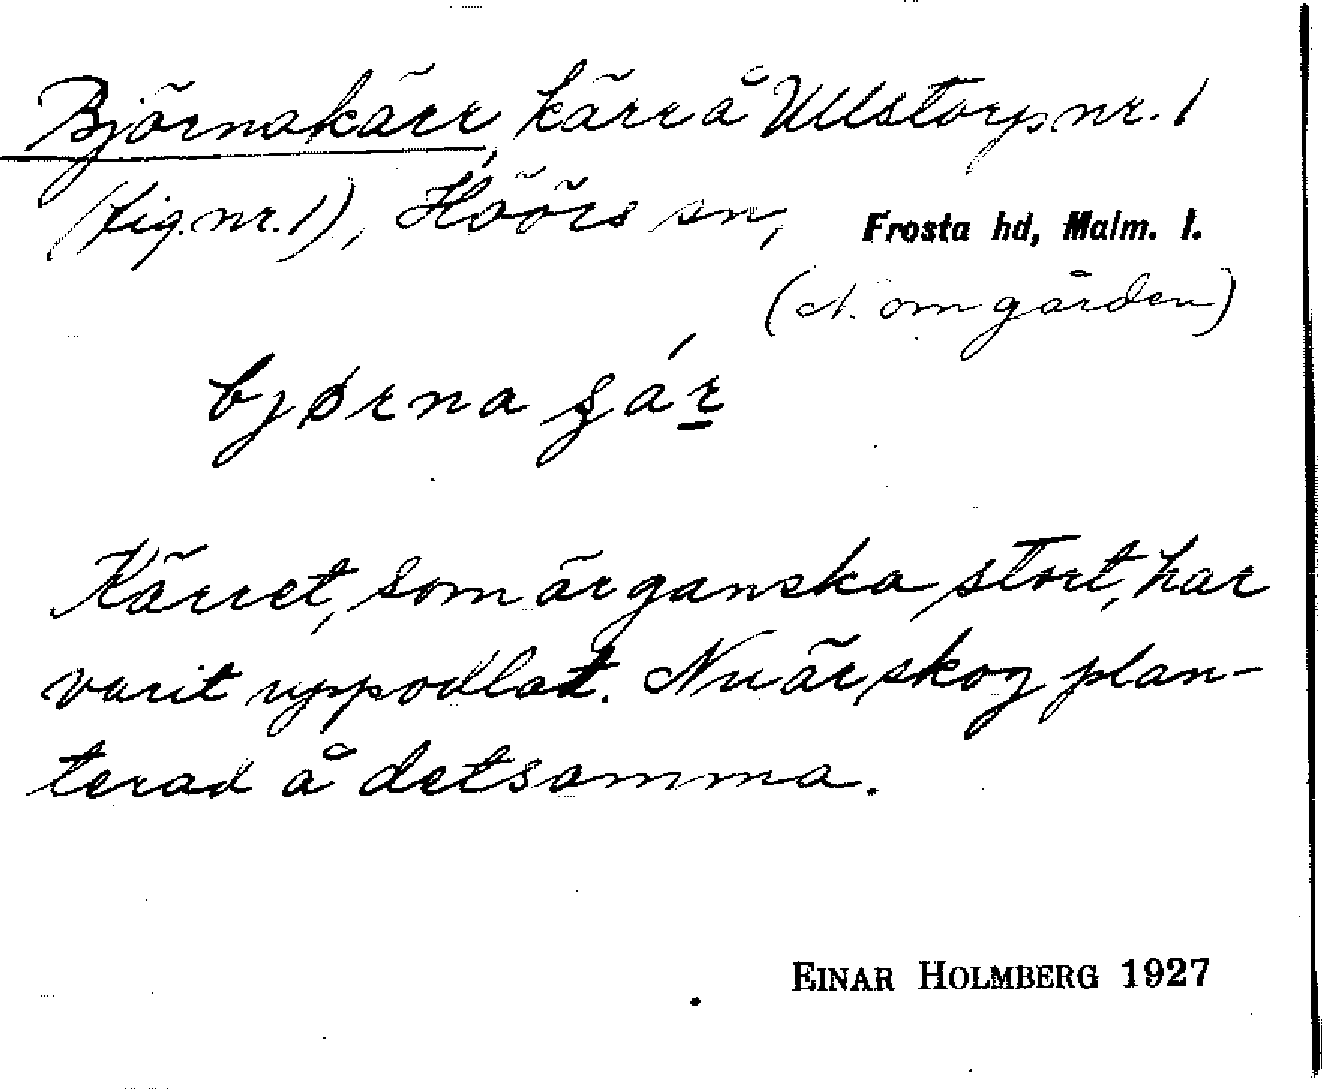 Björnakärr, kärr å Ullstorp nr. 1
(fig. nr. 1), Höörs sn, Frosta hd, Malm. l.
(N. om gården)
bjørna
Kärret, som är ganska stort, har
varit uppodlat. Nu är skog plan-
terad å detsamma.
EINAR HOLMBERG 1927